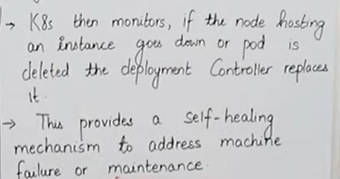 → K8s then monitors, if the node hosting
an instance goes down or pod is
deleted the deployment Controller replaces
it.
→ This provides a self-healing
mechanism to address machine
failure or maintenance.